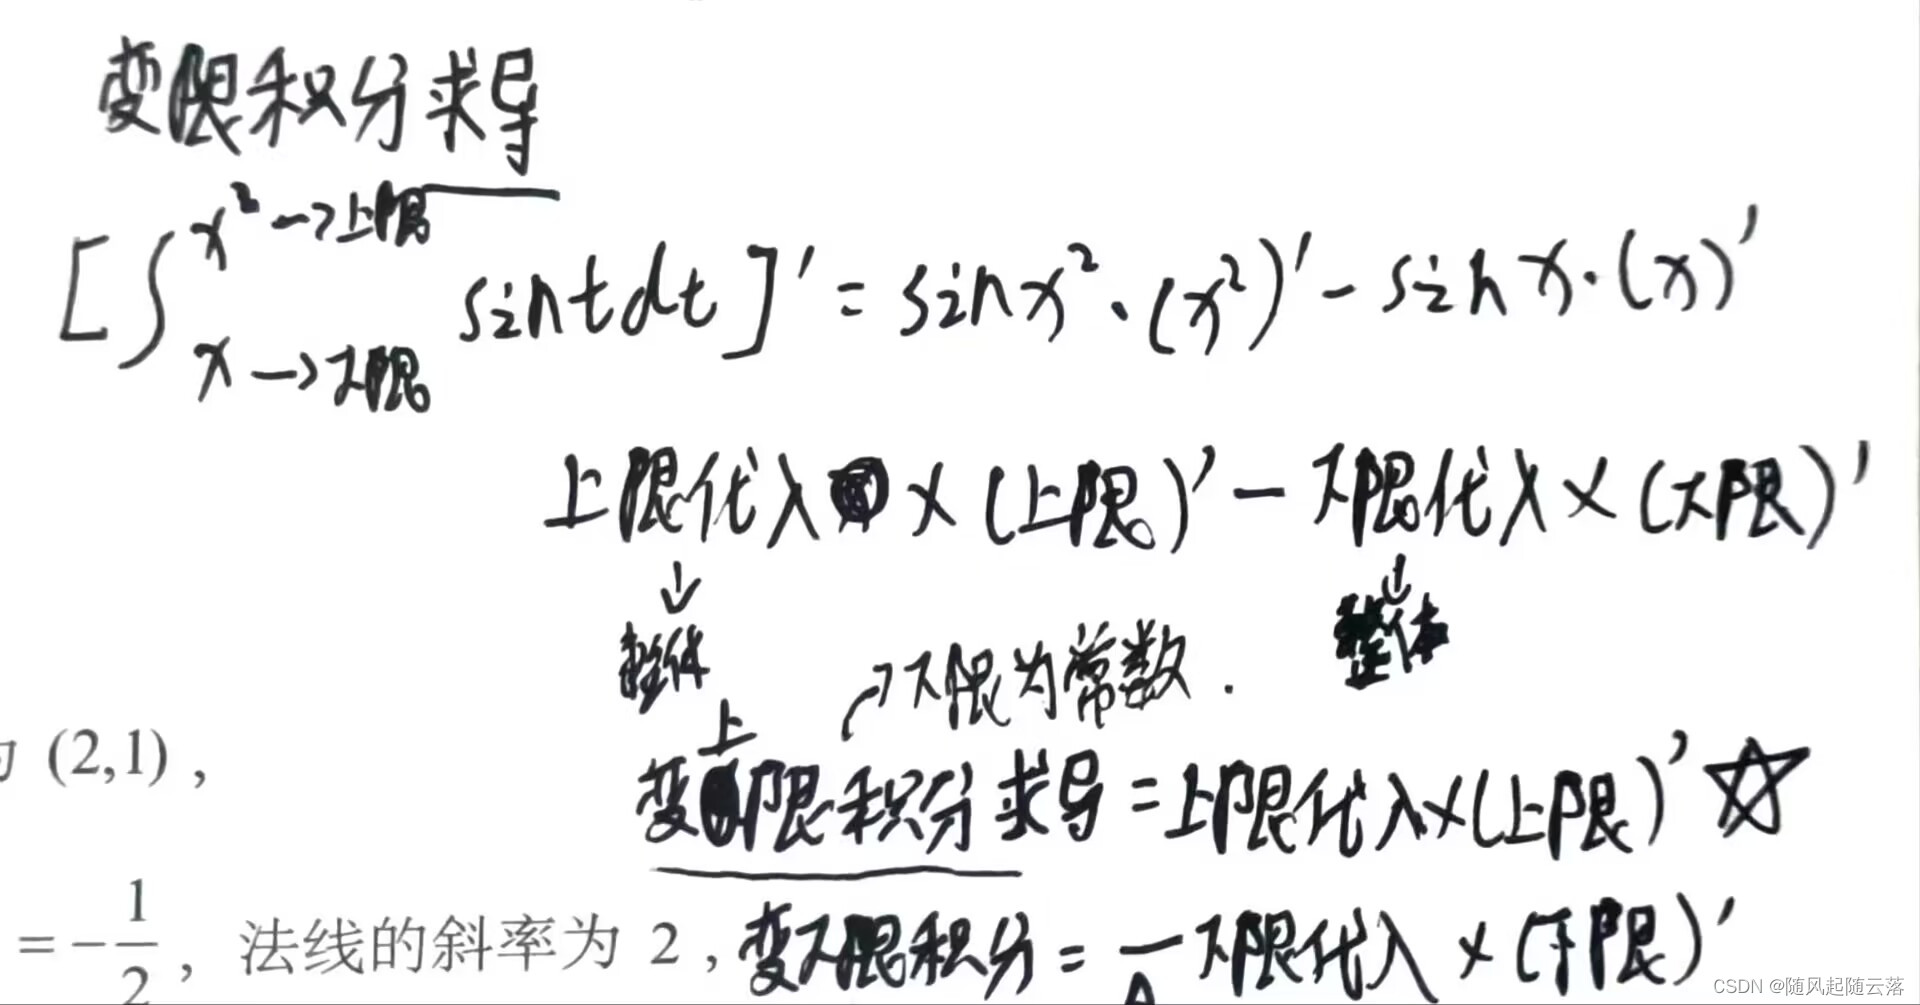 变限积分求导
x² → 上限
[∫ sint dt]' = sin x² · (x²)' - sin x · (x)'
x → 下限
上限代入 × (上限)' - 下限代入 × (下限)'
↓ ↓
整体 整体
↗下限为常数.
上
变限积分求导 = 上限代入 × (上限)' ☆
为 (2,1) ,
变下限积分 = - 下限代入 × (下限)'
= -1/2 , 法线的斜率为 2 ,
CSDN @随风起随云落